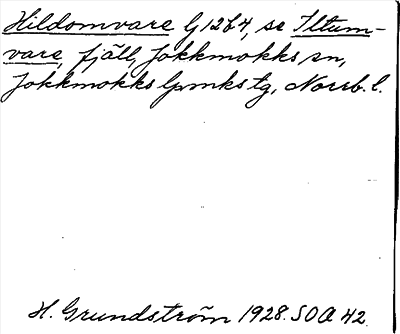 Hildomvare G 12b4, se Iltum-
vare, fjäll, Jokkmokks sn,
Jokkmokks lpmks tg, Norrb. l.
H. Grundström 1928. SOA 42.